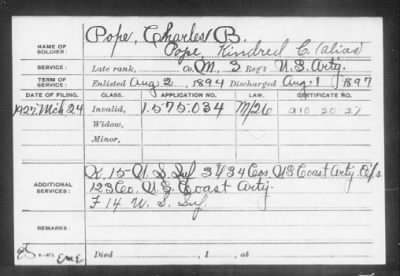 Pope, Charles B.
NAME OF SOLDIER: Pope, Kindred C. (alias)
SERVICE: Late rank, Co. M, 3 Reg't U.S. Arty.
TERM OF SERVICE: Enlisted Aug 2 1894 Discharged Aug. 1 1897
DATE OF FILING. CLASS. APPLICATION NO. LAW. CERTIFICATE NO.
1927. Mch 24 Invalid, 1.575.034 910 20-27
Widow,
Minor,
ADDITIONAL SERVICES: K, 15 U.S. Inf 31/34 Cos. US Coast Arty.
123 Co. U.S. Coast Arty.
F 14 U.S. Inf
REMARKS:
Died , 1 , at